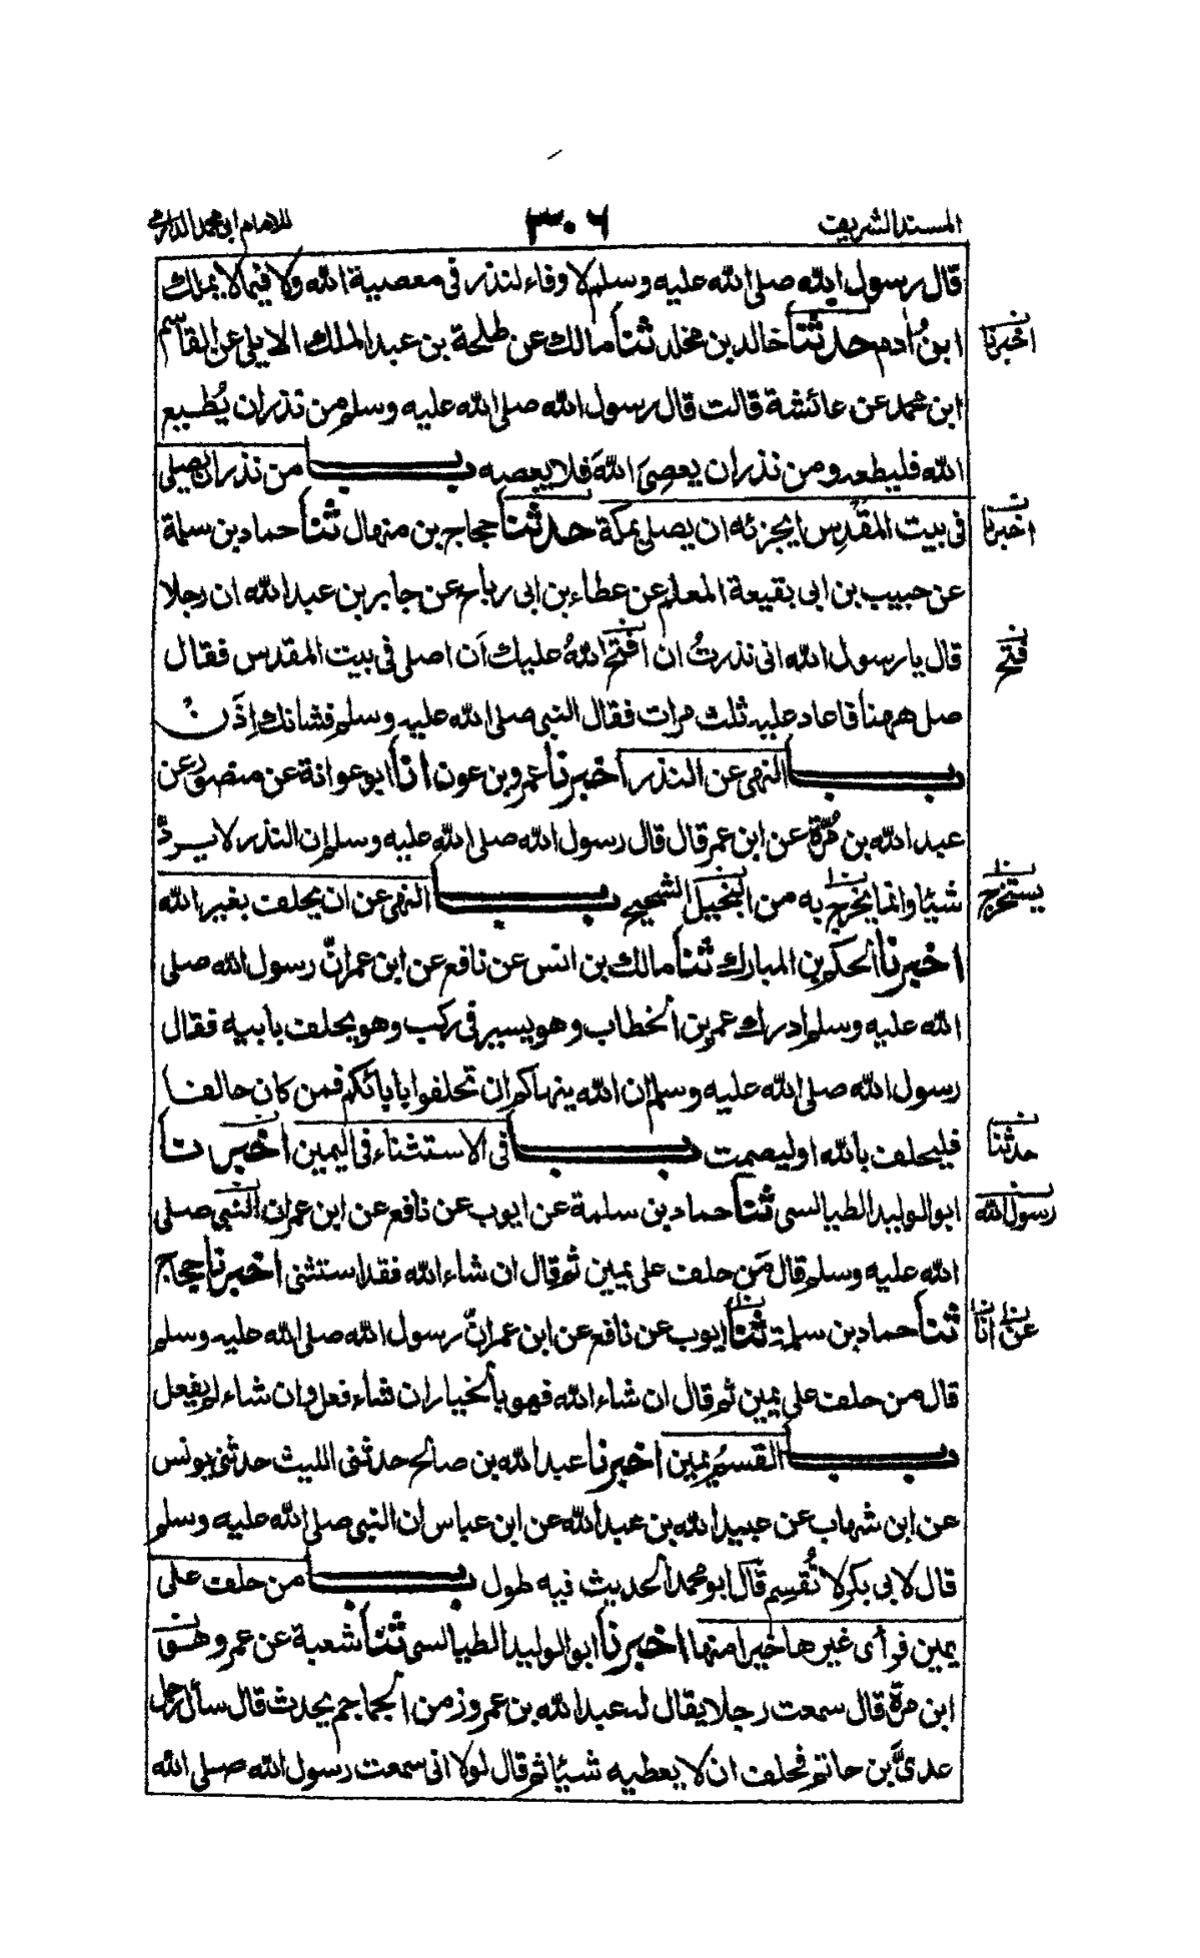 المسند الشريف
٣٠٦
للامام ابی محمد الدارمی
قال رسول الله صلى الله عليه وسلم لا وفاء لنذر فى معصية الله ولا فيما لا يملك
ابنُ اٰدم حدثنا خالد بن مخلد ثنا مالك عن طلحة بن عبد الملك الايلى عن القاسم
اخبرنا
ابن محمد عن عائشة قالت قال رسول الله صلى الله عليه وسلم من نذر ان يُطيع
الله فليطعه ومن نذر ان يعصىَ اللهَ فلا يعصه باب من نذر ان يصلى
فى بيت المَقْدِس ايجزئه ان يصلى بمكة حدثنا حجاج بن منهال ثنا حماد بن سلمة
اخبرنا
عن حبيب بن ابى بقيعة المعلم عن عطاء بن ابى رباح عن جابر بن عبد الله ان رجلا
قال يا رسول الله انى نذرتُ ان افتح اللهُ عليك اَن اصلى فى بيت المقدس فقال
فتح
صل ههنا فاعاد عليه ثلث مرات فقال النبى صلى الله عليه وسلم فشانك اِذَنْ
باب النهى عن النذر اخبرنا عمرو بن عون انا ابو عوانة عن منصور عن
عبد الله بن مُرَّة عن ابن عمر قال قال رسول الله صلى الله عليه وسلم ان النذر لا يردّ
شيئا وانما يخرج به من البخيل الشحيح باب النهى عن ان يحلف بغير الله
يستخرج
اخبرنا الحكم بن المبارك ثنا مالك بن انس عن نافع عن ابن عمر انّ رسول الله صلى
الله عليه وسلم ادرك عمر بن الخطاب وهو يسير فى ركب وهو يحلف بابيه فقال
رسول الله صلى الله عليه وسلم ان الله ينهاكم ان تحلفوا بابائكم فمن كان حالفا
فليحلف بالله او ليصمت باب فى الاستثناء فى اليمين اخبرنا
حدثنا
ابو الوليد الطيالسى ثنا حماد بن سلمة عن ايوب عن نافع عن ابن عمر ان النبى صلى
رسول الله
الله عليه وسلم قال مَن حلف على يمين ثم قال ان شاء الله فقد استثنى اخبرنا حجاج
ثنا حماد بن سلمة ثنا ايوب عن نافع عن ابن عمر انّ رسول الله صلى الله عليه وسلم
انا عن
قال من حلف على يمين ثم قال ان شاء الله فهو بالخيار ان شاء فعل وان شاء لم يفعل
باب القسم يمين اخبرنا عبد الله بن صالح حدثنى الليث حدثنى يونس
عن ابن شهاب عن عبيد الله بن عبد الله عن ابن عباس ان النبى صلى الله عليه وسلم
قال لابى بكر لا تُقسِم قال ابو محمد الحديث فيه طول باب من حلف على
يمين فرأى غيرها خيرا منها اخبرنا ابو الوليد الطيالسى ثنا شعبة عن عمرو هو
ابن مرة قال سمعت رجلا يقال له عبد الله بن عمرو زمن الجماجم يحدث قال سأل رجل
عدىَّ بن حاتم فحلف ان لا يعطيه شيئا ثم قال لولا انى سمعت رسول الله صلى الله